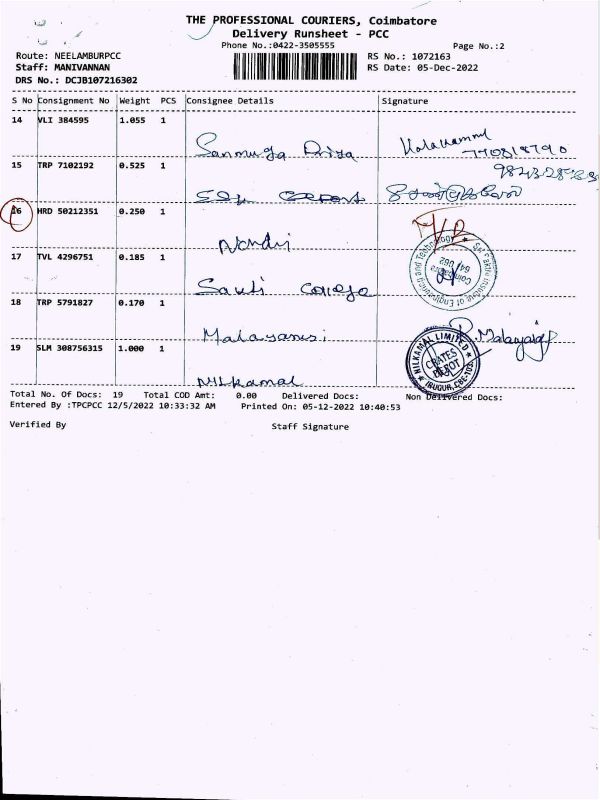 THE PROFESSIONAL COURIERS, Coimbatore
Delivery Runsheet - PCC
Phone No.:0422-3505555
Page No.:2
Route: NEELAMBURPCC
RS No.: 1072163
Staff: MANIVANNAN
RS Date: 05-Dec-2022
DRS No.: DCJB107216302
S No Consignment No Weight PCS Consignee Details Signature
14 VLI 384595 1.055 1
Sanmuga Priya
15 TRP 7102192 0.525 1
16 HRD 50212351 0.250 1
Nandri
17 TVL 4296751 0.185 1
Sakti College
18 TRP 5791827 0.170 1
19 SLM 308756315 1.000 1
NILKAMAL LIMITED
CRATES DEPOT
Nilkamal
Total No. Of Docs: 19 Total COD Amt: 0.00 Delivered Docs: Non Delivered Docs:
Entered By :TPCPCC 12/5/2022 10:33:32 AM Printed On: 05-12-2022 10:40:53
Verified By Staff Signature